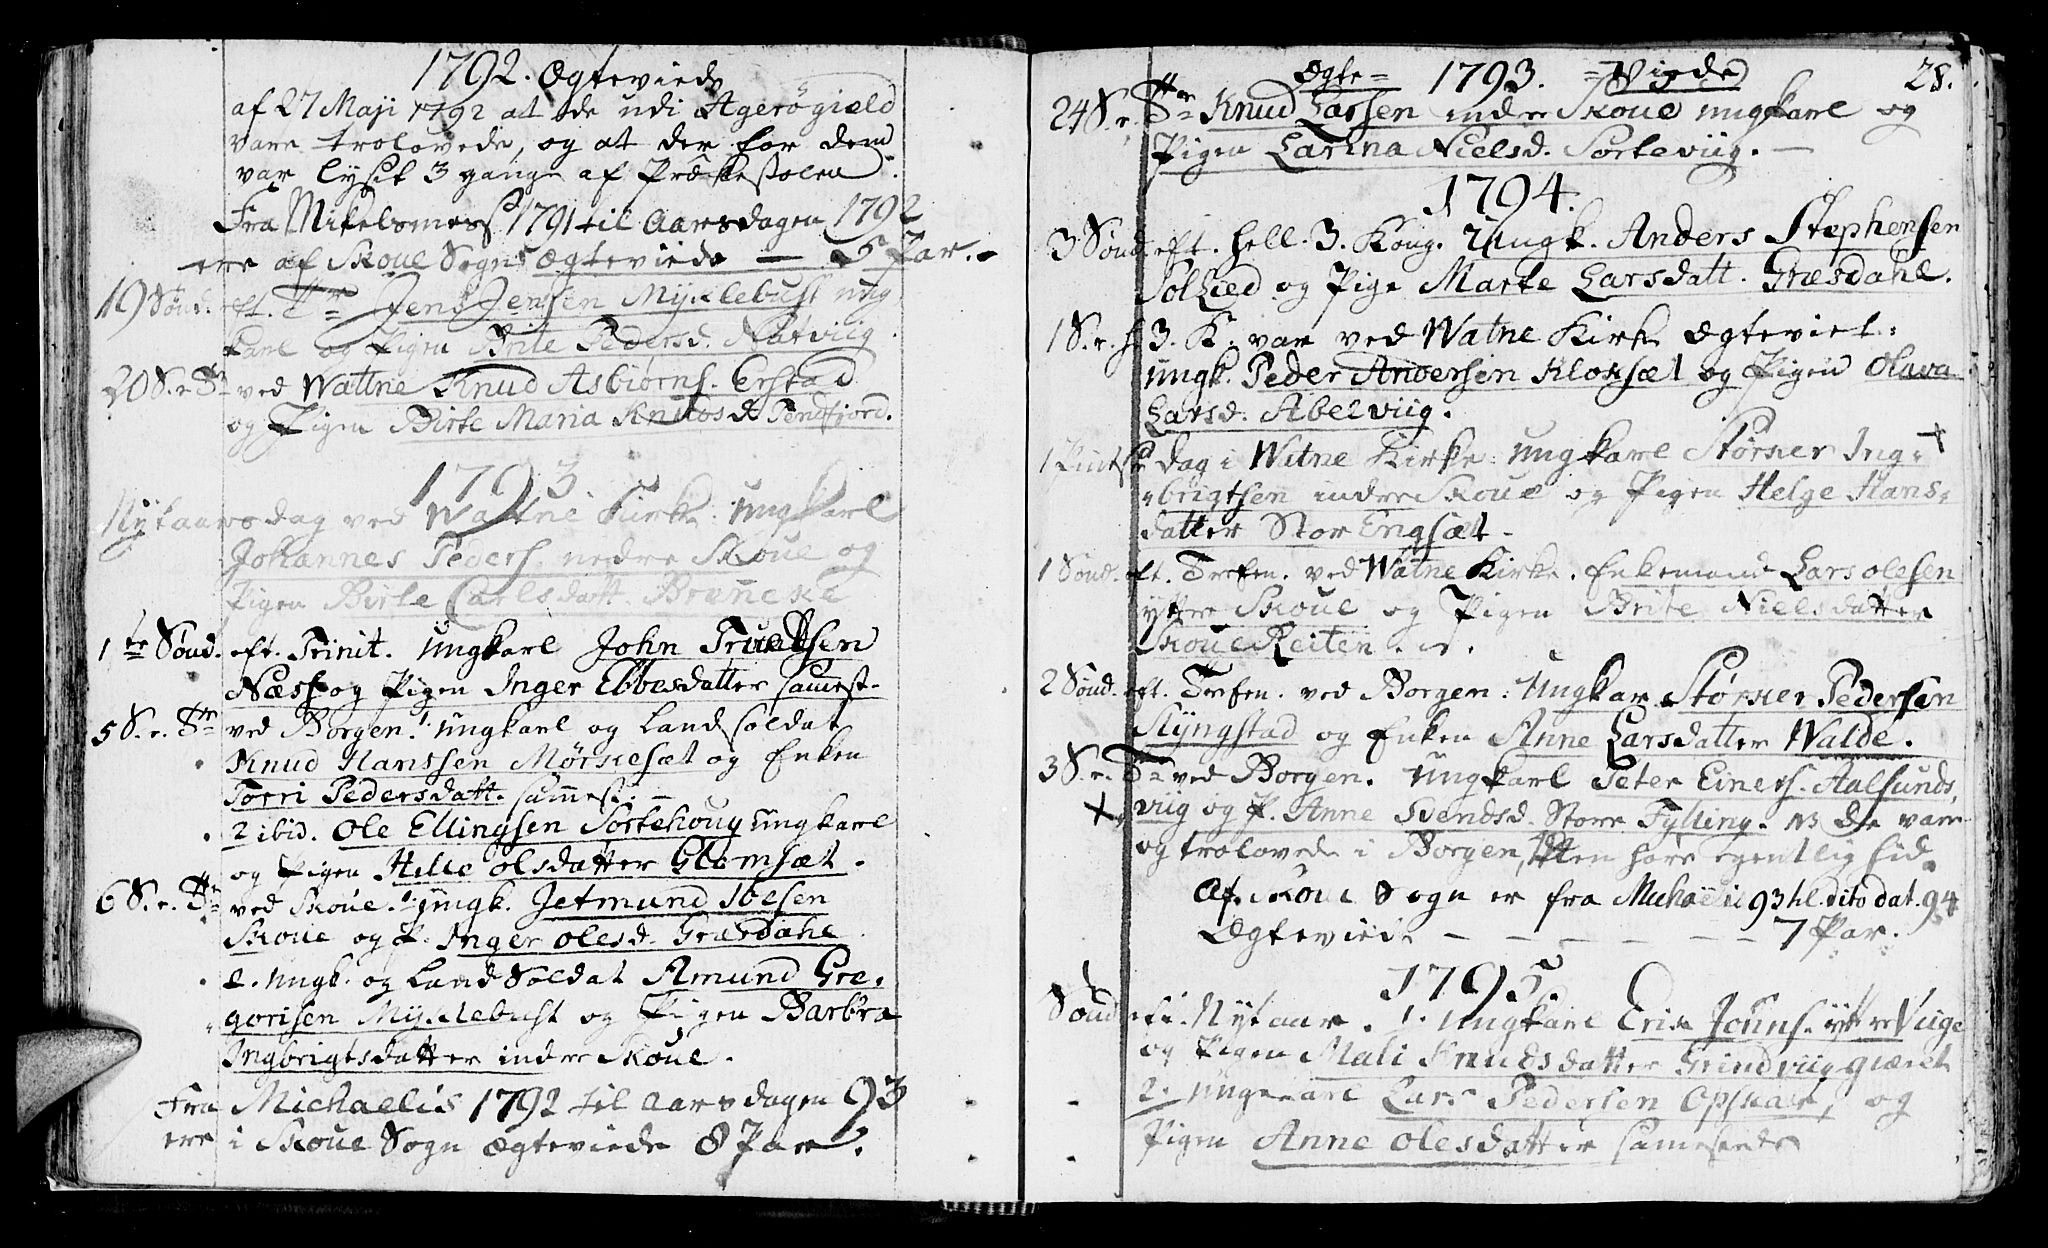 1792. Ægteviede
af 27 Maji 1792 at de udi Agerø gield
vare trolovede, og at der for dem
var lyset 3 gange af Prækestolen.
Fra Mikelsmess 1791 til Aarsdagen 1792
ere af Skoue Sogn Ægteviede — 5 Par.
19 Sønd. eft. Tr Jens Jensen Myklebust ung
karl og Pigen Brite Pedersd. Natviig.
20 S. e. Tr ved Wattne Knud Asbiørns. Erstad
og Pigen Birte Maria Knudsd. Tendfiord.
1793
Nytaarsdag ved Watne Kirke: Ungkarl
Johannes Peders. nedre Skoue og
Pigen Birte Carlsdatt. Brune
1te Sønd. eft. Trinit. Ungkarl John Truelsen
Næss og Pigen Inger Ebbesdatter samest.
5 S. e. Tr ved Borgen. 1 ungkarl og Landsoldat
Knud Hanssen Mørkesæt og Enken
Torri Pedersdatt. samest. —
2 ibid. Ole Ellingsen Sortehoug ungkarl
og Pigen Hille Olsdatter Glomsæt.
6 S. e. Tr ved Skoue. 1. ungk. Jetmund Joesen
Skoue og P. Inger Olesd. Græsdahl
2. ungk. og Land Soldat Amund Gre-
gorisen Myklebust og Pigen Barbra
Ingbrigtsdatter indre Skoue.
Fra Michaelis 1792 til Aarsdagen 93
ere i Skoue Sogn Ægteviede 8 Par.
Ægte= 1793. =Viede 28.
24 S. e. Tr Knud Larsen indre Skoue ungkarl og
Pigen Larina Nielsd. Sorteviig. —
1794.
3 Sønd. eft. hell. 3. Kong. Ungk. Anders Stephensen
Solliied og Pige Marte Larsdatt. Græsdahl.
1 S. e. h. 3. K. var ved Watne Kirke Ægteviet:
ungk. Peder Andersen Kloksæt og Pigen Olava
Larsd. Abelviig.
1 Pintsedag i Watne Kirke: Ungkarl Størker Ing-
brigtsen indre Skoue og Pigen Helge Hans-
datter Stor Engsæt -
1 Sønd. eft. Trefen. ved Watne Kirke. Enkemand Lars Olesen
yttre Skoue og Pigen Brite Nielsdatter
Skoue Reiten.
2 Sønd. eft. Trefen. ved Borgen: Ungkar Størker Pedersen
Slyngstad og Enken Anne Larsdatter Walde.
3 S. e. Tr ved Borgen. Ungkarl Peter Einers. Aalsunds
viig og P. Anne Svendsd. Store Fylling. NB de vare
og trolovede i Borgen, Men høre egentlig hid.
Af Skoue Sogn er fra Michaeli 93 til dito dat. 94
Ægteviede — — — — — 7 Par.
1795.
Sønd. eft. Nytaar. 1. Ungkarl Erik Johns. yttre Viige
og Pigen Mali Knudsdatter Grindviig qværet
2. Ungkarl Lars Pedersen Opskar, og
Pigen Anne Olesdatter samesteds